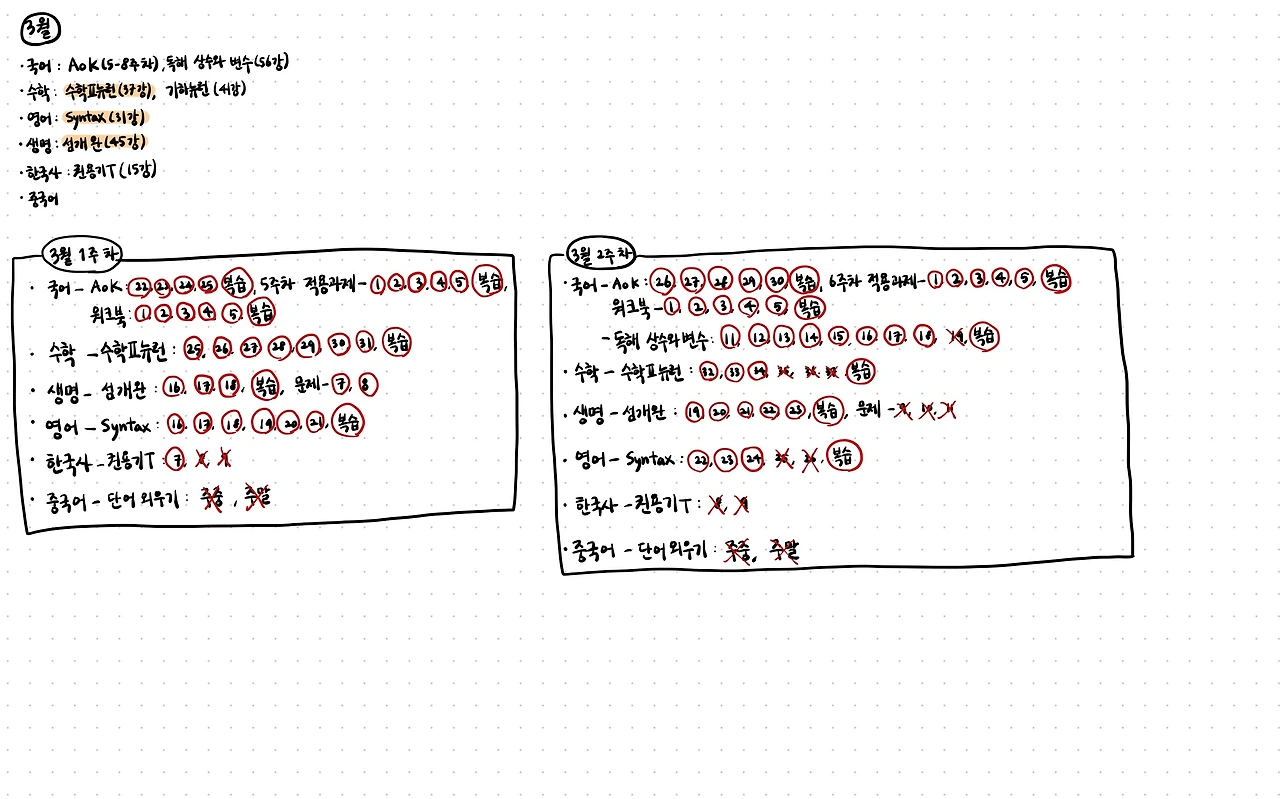 3월
· 국어 : AOK(5-8주차), 독해 상수와 변수(56강)
· 수학 : 수학Ⅱ뉴런(37강), 기하뉴런(41강)
· 영어 : Syntax(31강)
· 생명 : 섬개완(45강)
· 한국사 : 권용기T(15강)
· 중국어
3월 1주차
· 국어 - AOK : 22, 23, 24, 25, 복습, 5주차 적용과제 - 1, 2, 3, 4, 5, 복습,
워크북 : 1, 2, 3, 4, 5, 복습
· 수학 - 수학Ⅱ뉴런 : 25, 26, 27, 28, 29, 30, 31, 복습
· 생명 - 섬개완 : 16, 17, 18, 복습, 문제 - 7, 8
· 영어 - Syntax : 16, 17, 18, 19, 20, 21, 복습
· 한국사 - 권용기T : 7, 8, 9
· 중국어 - 단어 외우기 : 주중, 주말
3월 2주차
· 국어 - AOK : 26, 27, 28, 29, 30, 복습, 6주차 적용과제 - 1, 2, 3, 4, 5, 복습
워크북 - 1, 2, 3, 4, 5, 복습
- 독해 상수와 변수 : 11, 12, 13, 14, 15, 16, 17, 18, 19, 복습
· 수학 - 수학Ⅱ뉴런 : 32, 33, 34, 35, 36, 37, 복습
· 생명 - 섬개완 : 19, 20, 21, 22, 23, 복습, 문제 - 9, 10, 11
· 영어 - Syntax : 22, 23, 24, 25, 26, 복습
· 한국사 - 권용기T : 8, 9
· 중국어 - 단어 외우기 : 주중, 주말